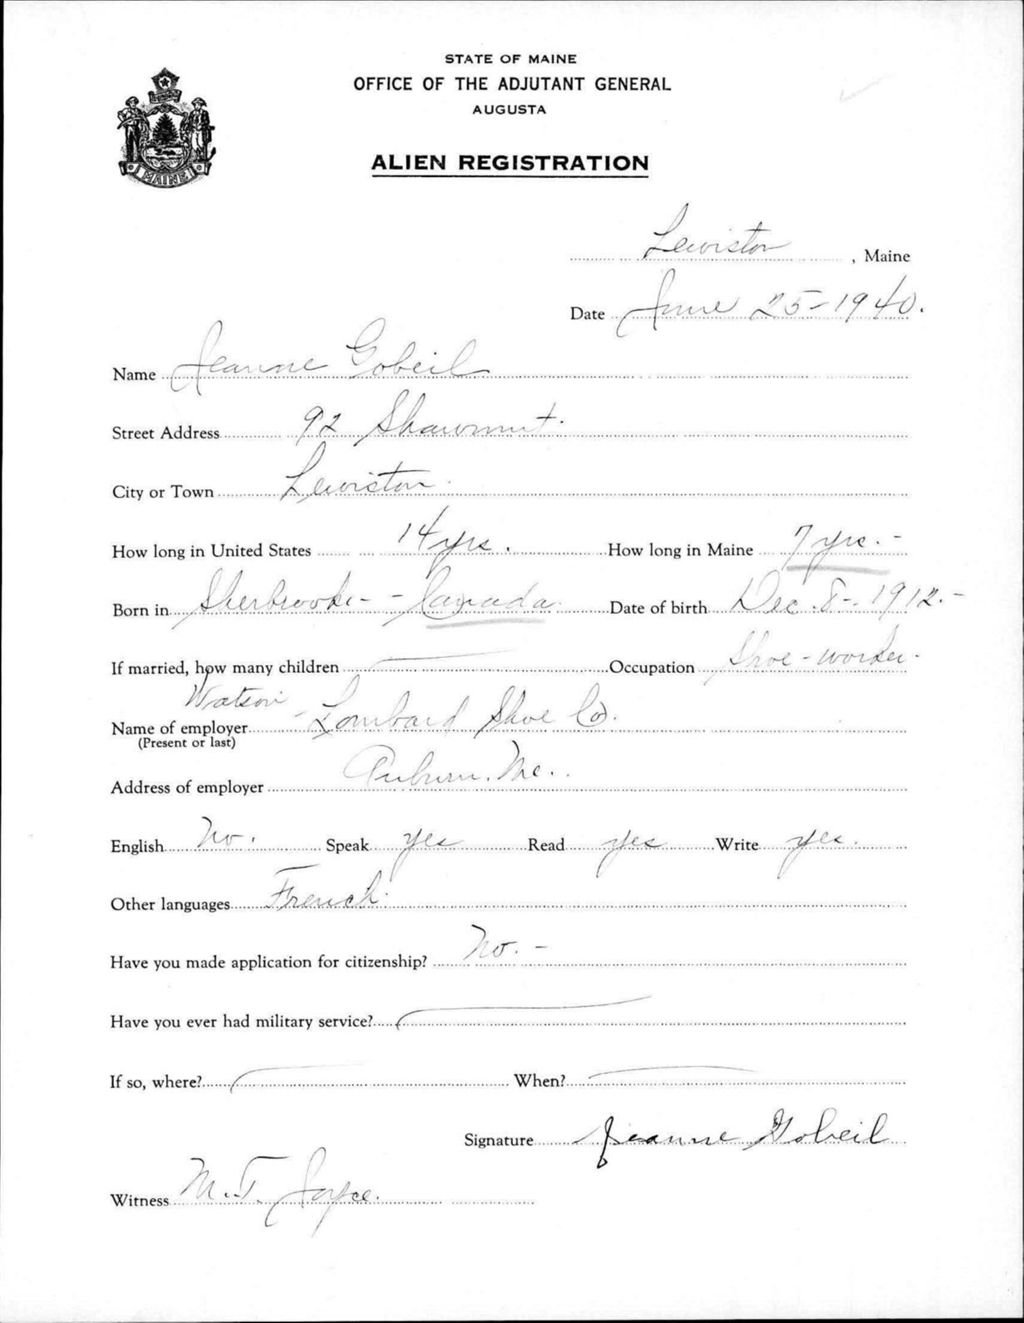 STATE OF MAINE
OFFICE OF THE ADJUTANT GENERAL
AUGUSTA
ALIEN REGISTRATION
MAINE
Lewiston, Maine
Date June 25-1940.
Name Jeanne Gobeil
Street Address 92 Shawmut.
City or Town Lewiston.
How long in United States 14 yrs. How long in Maine 7 yrs. -
Born in Sherbrooke - Canada. Date of birth Dec. 8-, 1912.-
If married, how many children — Occupation Shoe-worker-
Watson-
Name of employer Lombard Shoe Co.
(Present or last)
Address of employer Auburn, Me.
English No. Speak yes Read yes Write yes.
Other languages French.
Have you made application for citizenship? No. -
Have you ever had military service? —
If so, where? — When? —
Signature Jeanne Gobeil
Witness M. T. Joyce.